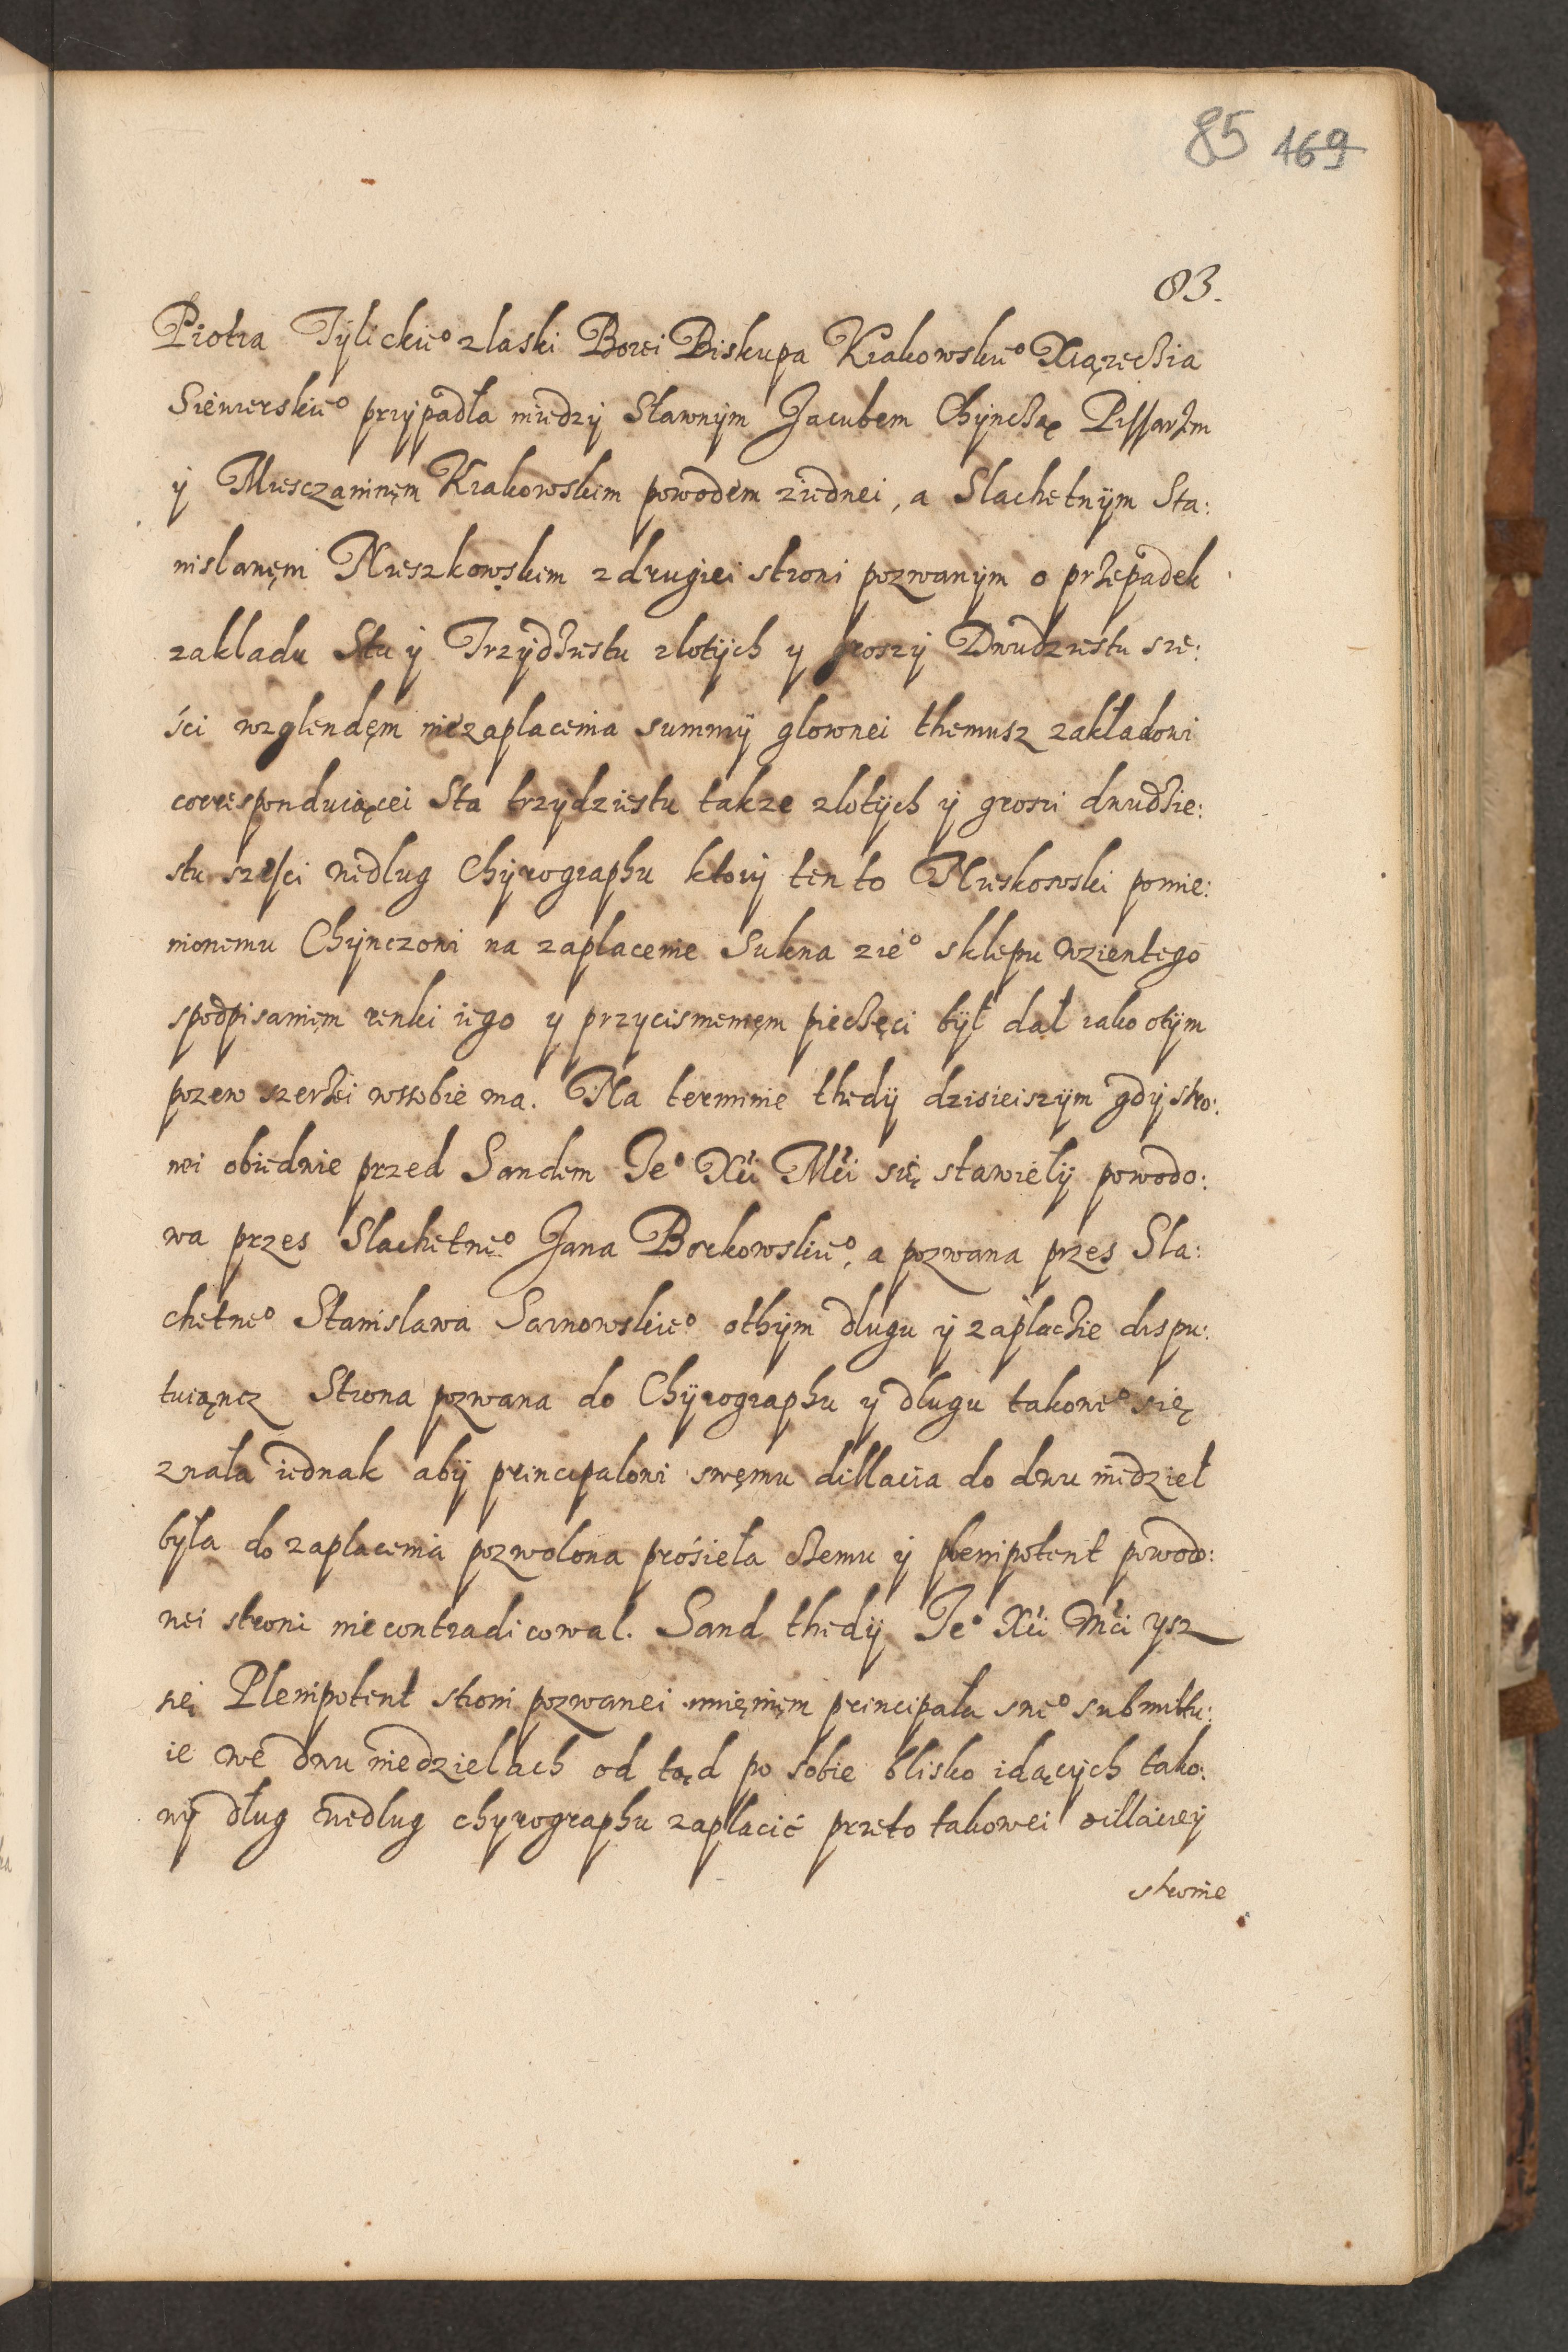 85 169
83.
Piotra Tÿlickie° z laski Bozei Biskupa Krakowskie° Xiązęcia
Siewierskie° przÿpadła miedzÿ Sławnÿm Jacubem Chÿnczą Pissarzm
ÿ Miesczaninęm Krakowskim powodem ziednei, a Slachetnÿm Sta:
nislawęm Mieszkowskim z drugiei stroni pozwanÿm o przepadek
zakladu Stu ÿ Trzÿdziestu zlotÿch y groszÿ Dwudziestu sze:
ści wzglendęm niezaplacenia summÿ glownei themusz zakładowi
corresponduiącei Sta trzÿdziestu takze zlotÿch ÿ groszi dwudzie:
stu sześci wedlug Chÿrographu ktorÿ ten to Mieskowski pomie:
nionemu Chÿnczowi na zaplacenie Sukna zie° sklepu wzientego
spodpisanięm renki iego y przycisnienięm pieczęci bÿł dał iako otÿm
pozew szerzei wsobie ma. Na terminie thedÿ dzisieiszÿm gdÿ stro:
nei obiedwie przed Sandem Je° Xći Mći się stawiełÿ powodo:
wa przes Slachetne° Jana Borkowskie°, a pozwana przes Sla:
chetne° Stanislawa Sarnowskie° othÿm dlugu ÿ zaplacie dispu:
tuiąncz Strona pozwana do Chÿrographu y dlugu takowe° się
znała iednak abÿ principalowi swęmu dillacia do dwu niedziel
była do zaplacenia pozwolona prósieła czemu ÿ plenipotent powod:
nei stroni nie contradicowal. Sand thedÿ Je° Xći Mći ysz
się Plenipotent stroni pozwanei imięnięm principała swe° submittu:
ie we dwu niedzielach od tąd po sobie blisko idącÿch tako:
wÿ dług wedlug chyrographu zaplacić przeto takowei dillaciey
stronie